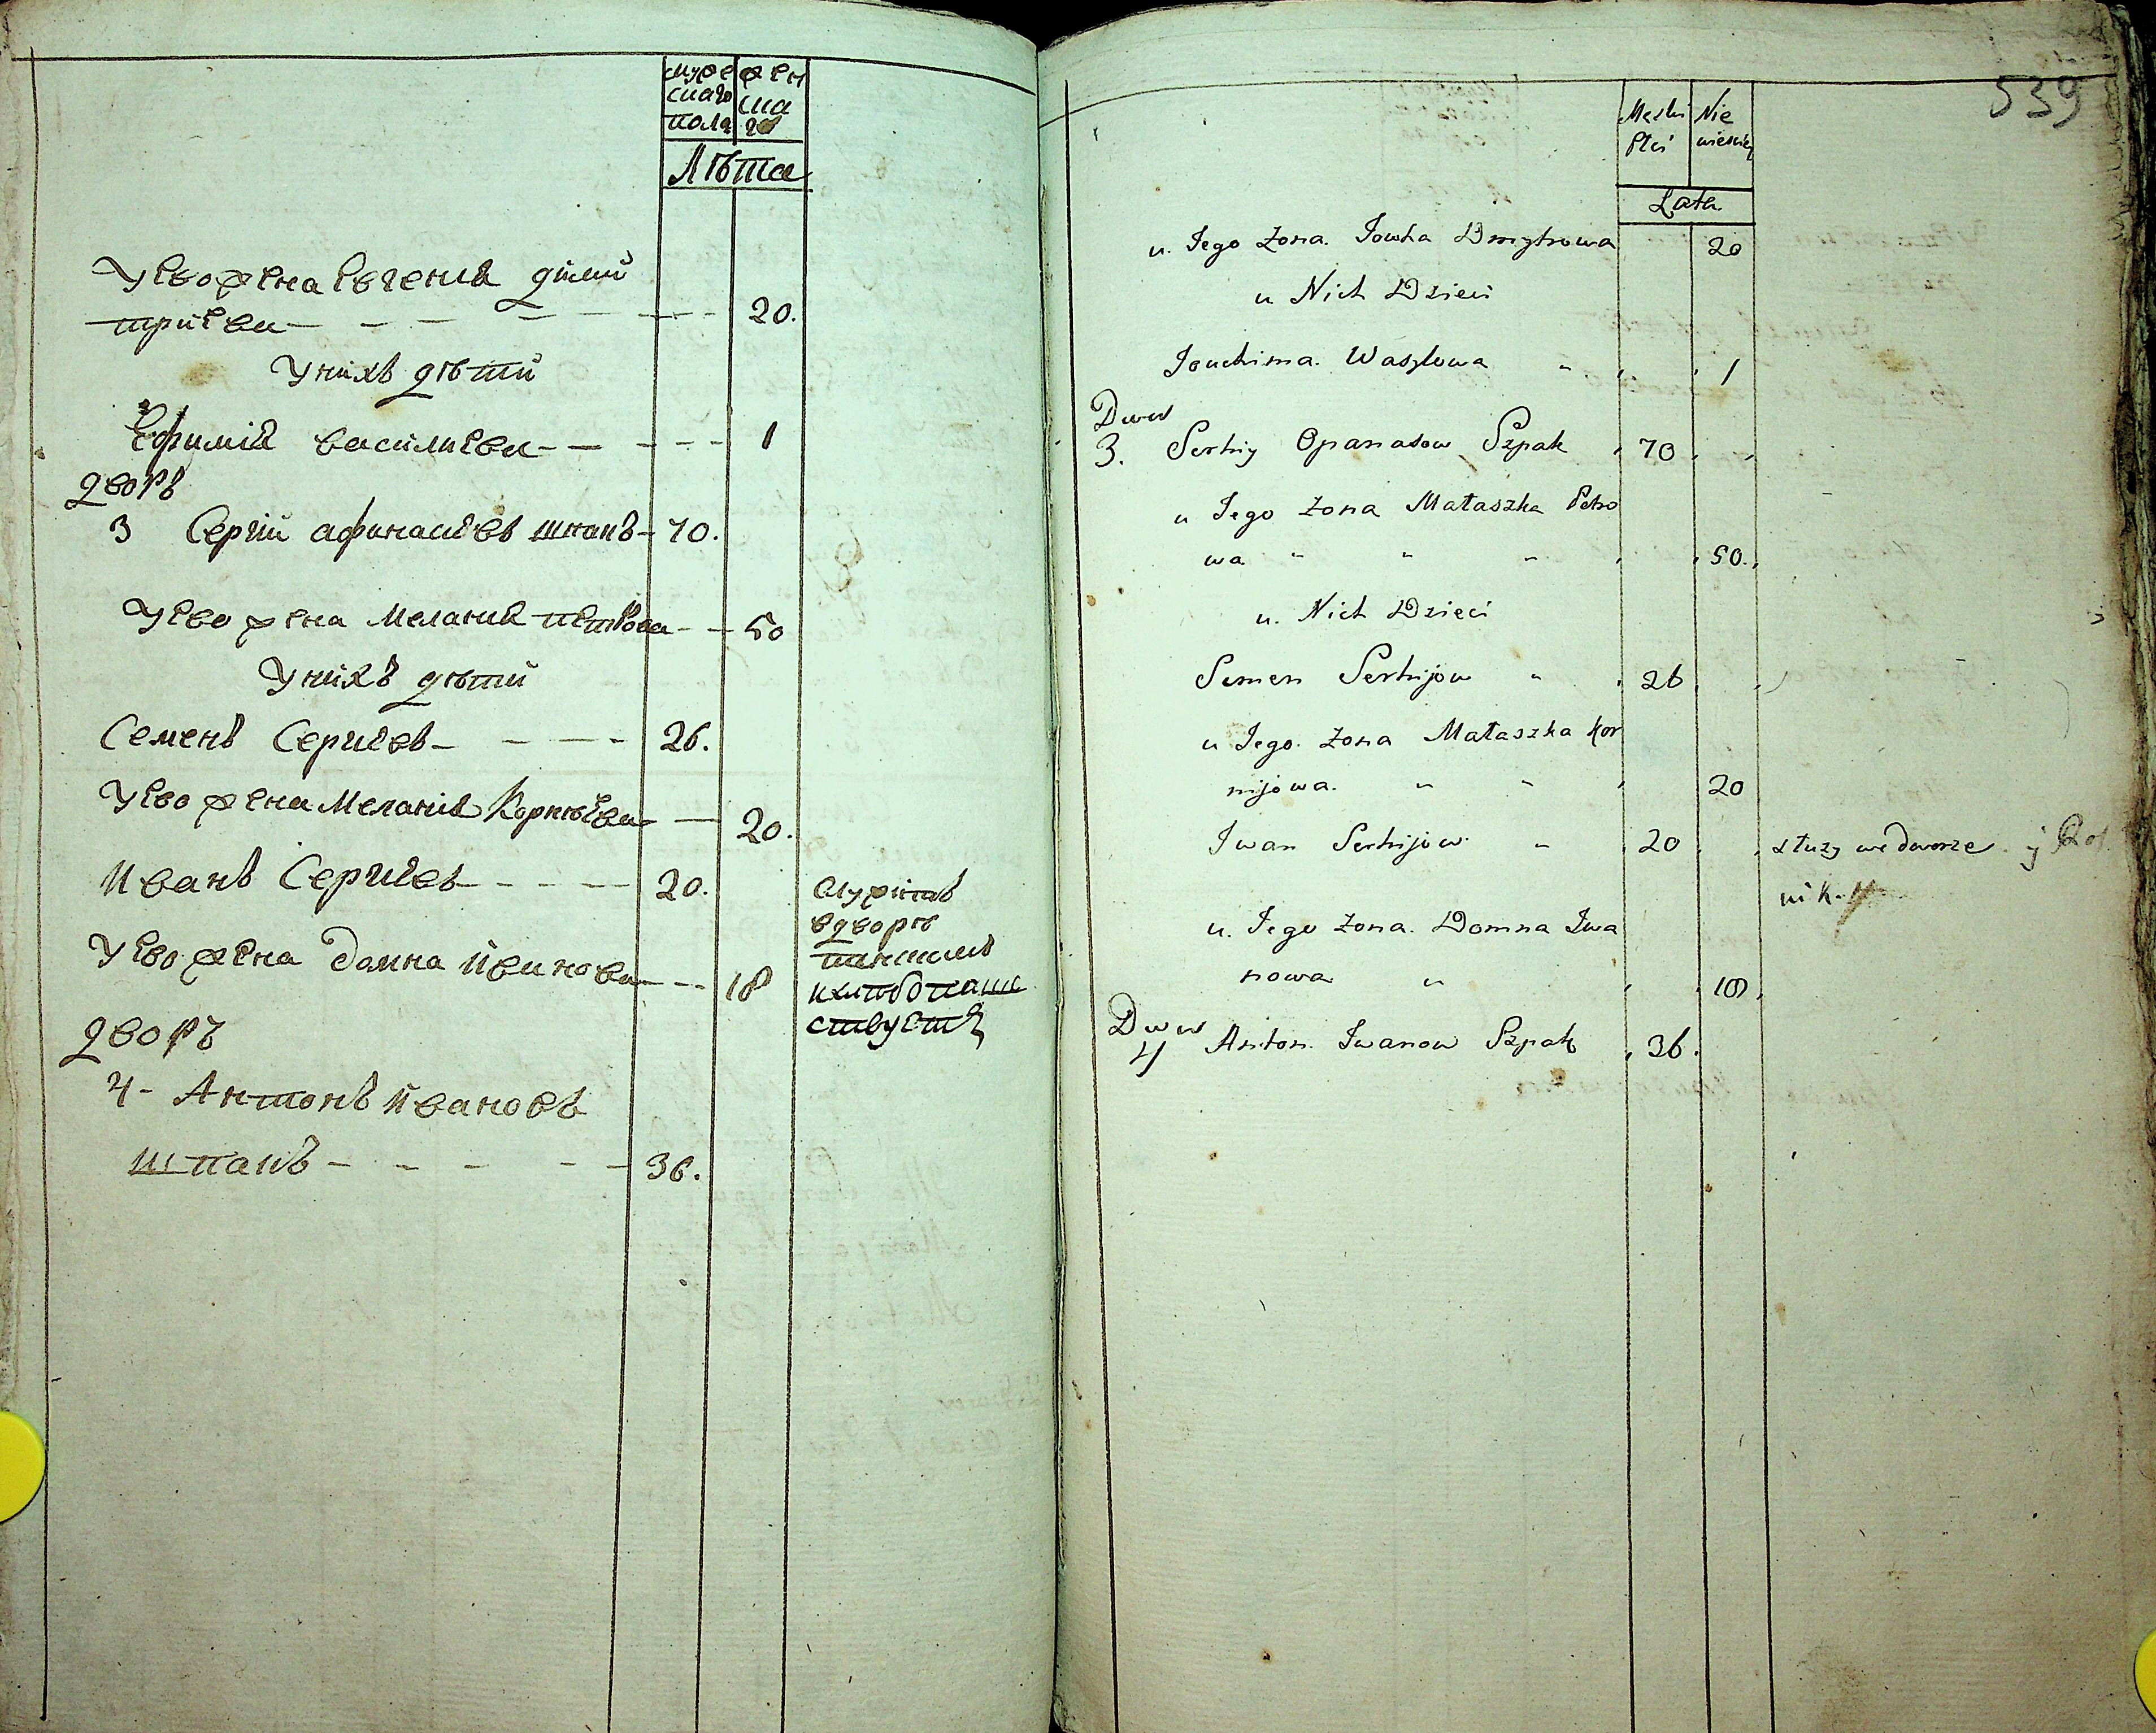 мужескаго пола
женска го
Лѣта
У Ево жена Евгения дмит
триева 20.
У нихъ дѣти
Ефимия василиева 1
дворъ
3 Сергий афанасиевъ шпакъ 70.
У Ево жена Мелания петрова 50
У нихъ дѣти
Семенъ Сергиевъ 26.
У Ево жена Мелания Корнѣева 20.
Иванъ Сергиевъ 20.
Служитъ
вдворѣ
У Ево жена Домна Иванова 18
дворъ
4 Антонъ Ивановъ
шпакъ 36.
539
Męzki Płci
Nie wieściey
Lata
u Jego żona Jowha Dmytrowa 20
u Nich Dzieci
Jouchima Wasylowa 1
Dwor
3. Serhiy Opanasow Szpak 70
u Jego żona Małaszka Petro
wa 50.
u Nich Dzieci
Semen Serhijow 26
u Jego żona Małaszka Kor
nijowa 20
Iwan Serhijow 20 służy we dworze y Rol
nik
u Jego żona Domna Iwa
nowa 18
Dwor
4 Anton Iwanow Szpak 36.